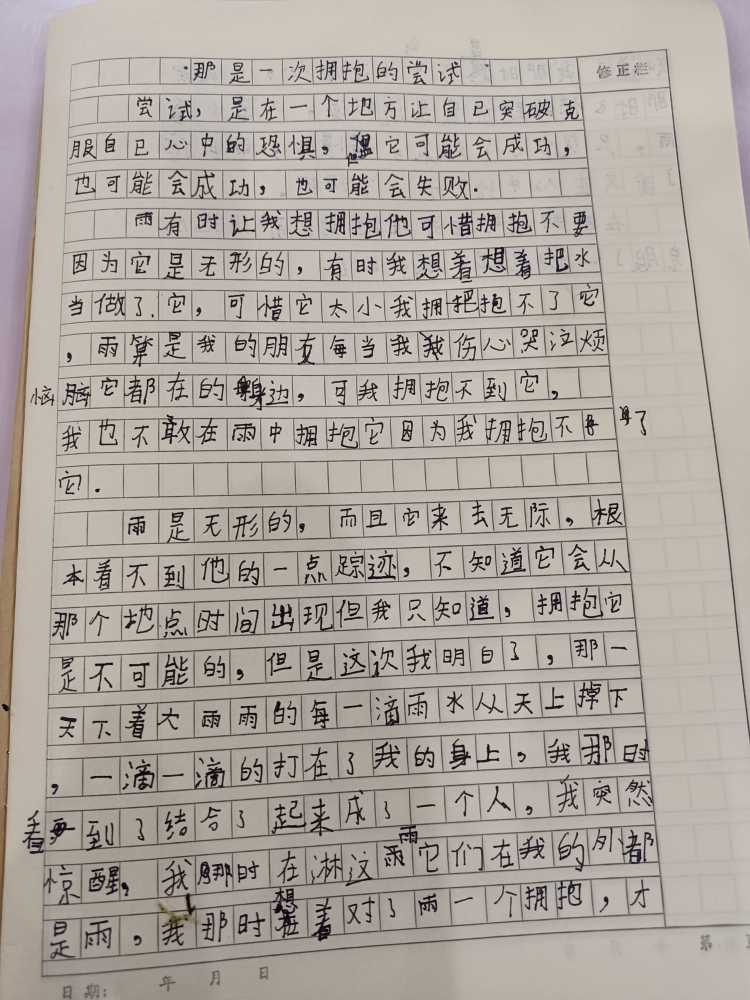 那是一次拥抱的尝试
修正栏
尝试，是在一个地方让自己突破克
服自己心中的恐惧，但它可能会成功，
也可能会成功，也可能会失败.
雨有时让我想拥抱他可惜拥抱不要
因为它是无形的，有时我想着想着把水
当做了.它，可惜它太小我拥把抱不了它
，雨算是我的朋友每当我我伤心哭泣烦
恼它都在的身边，可我拥抱不到它，
我也不敢在雨中拥抱它因为我拥抱不 了
它.
雨是无形的，而且它来去无际，根
本看不到他的一点踪迹，不知道它会从
那个地点时间出现但我只知道，拥抱它
是不可能的，但是这次我明白了，那一
天下着大雨雨的每一滴雨水从天上掉下
，一滴一滴的打在了我的身上，我那时
看到了结合了起来成了一个人，我突然
惊醒，我那时在淋这雨它们在我的外都
是雨，我那时想着对了雨一个拥抱，才
日期： 年 月 日
第